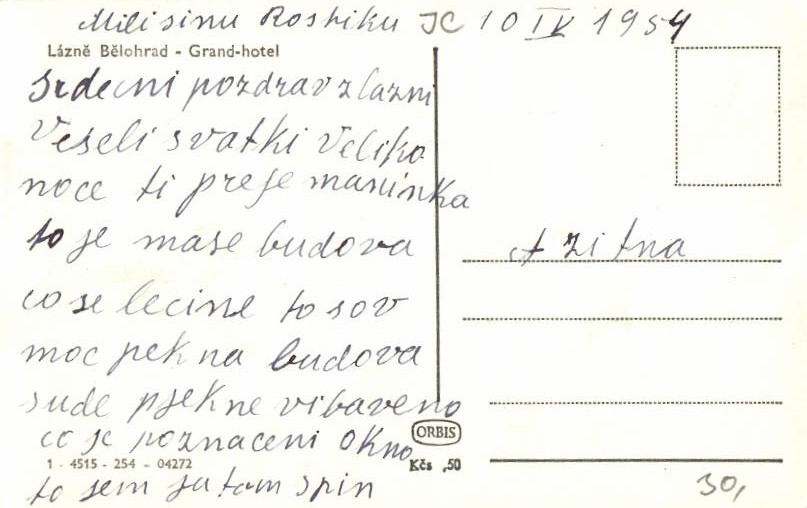 Milisinu Rostiku JC 10 IV 1954
Lázně Bělohrad - Grand-hotel
Srdecni pozdrav z lazni
Veseli svatki veliko
noce ti preje maminka
to je mase budova
co se lecine to sov
moc pekna budova
sude pjekne vibaveno
co je poznaceni okno
to sem ja tam spin
A zitna
ORBIS
1 - 4515 - 254 - 04272
Kčs ,50
30,